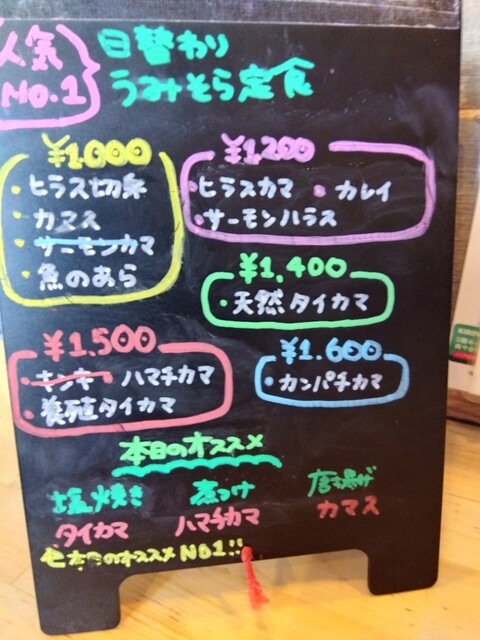 人気
NO.1
日替わり
うみそら定食
¥1,000
・ヒラス切身
・カマス
・サーモンカマ
・魚のあら
¥1,200
・ヒラスカマ ・カレイ
・サーモンハラス
¥1.400
・天然タイカマ
¥1.500
・キンキ・ハマチカマ
・養殖タイカマ
¥1.600
・カンパチカマ
本日のオススメ
塩焼き 煮つけ 唐揚げ
タイカマ ハマチカマ カマス
本日のオススメ NO1!!